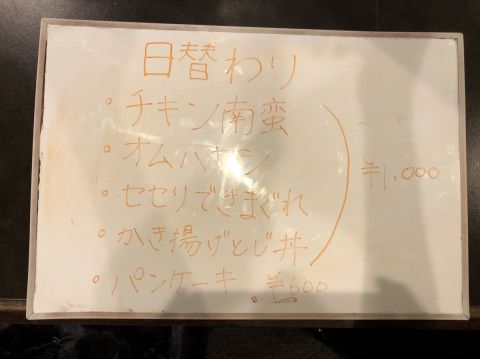 日替わり
・チキン南蛮
・オムハヤシ
・セセリできまぐれ
・かき揚げとじ丼
¥1,000
・パンケーキ ¥600